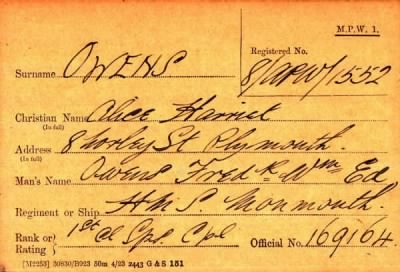 M.P.W. 1.
Surname OWENS
Registered No. 8/APW/1552
Christian Name Alice Harriet
(In full)
Address 8 Morley St Plymouth.
(In full)
Man's Name Owens Fredk Wm Ed
Regiment or Ship HMS Monmouth.
Rank or Rating 1st Cl Sps Cpl
Official No. 169164.
[M2253] 30830/B923 50m 4/23 2443 G & S 151